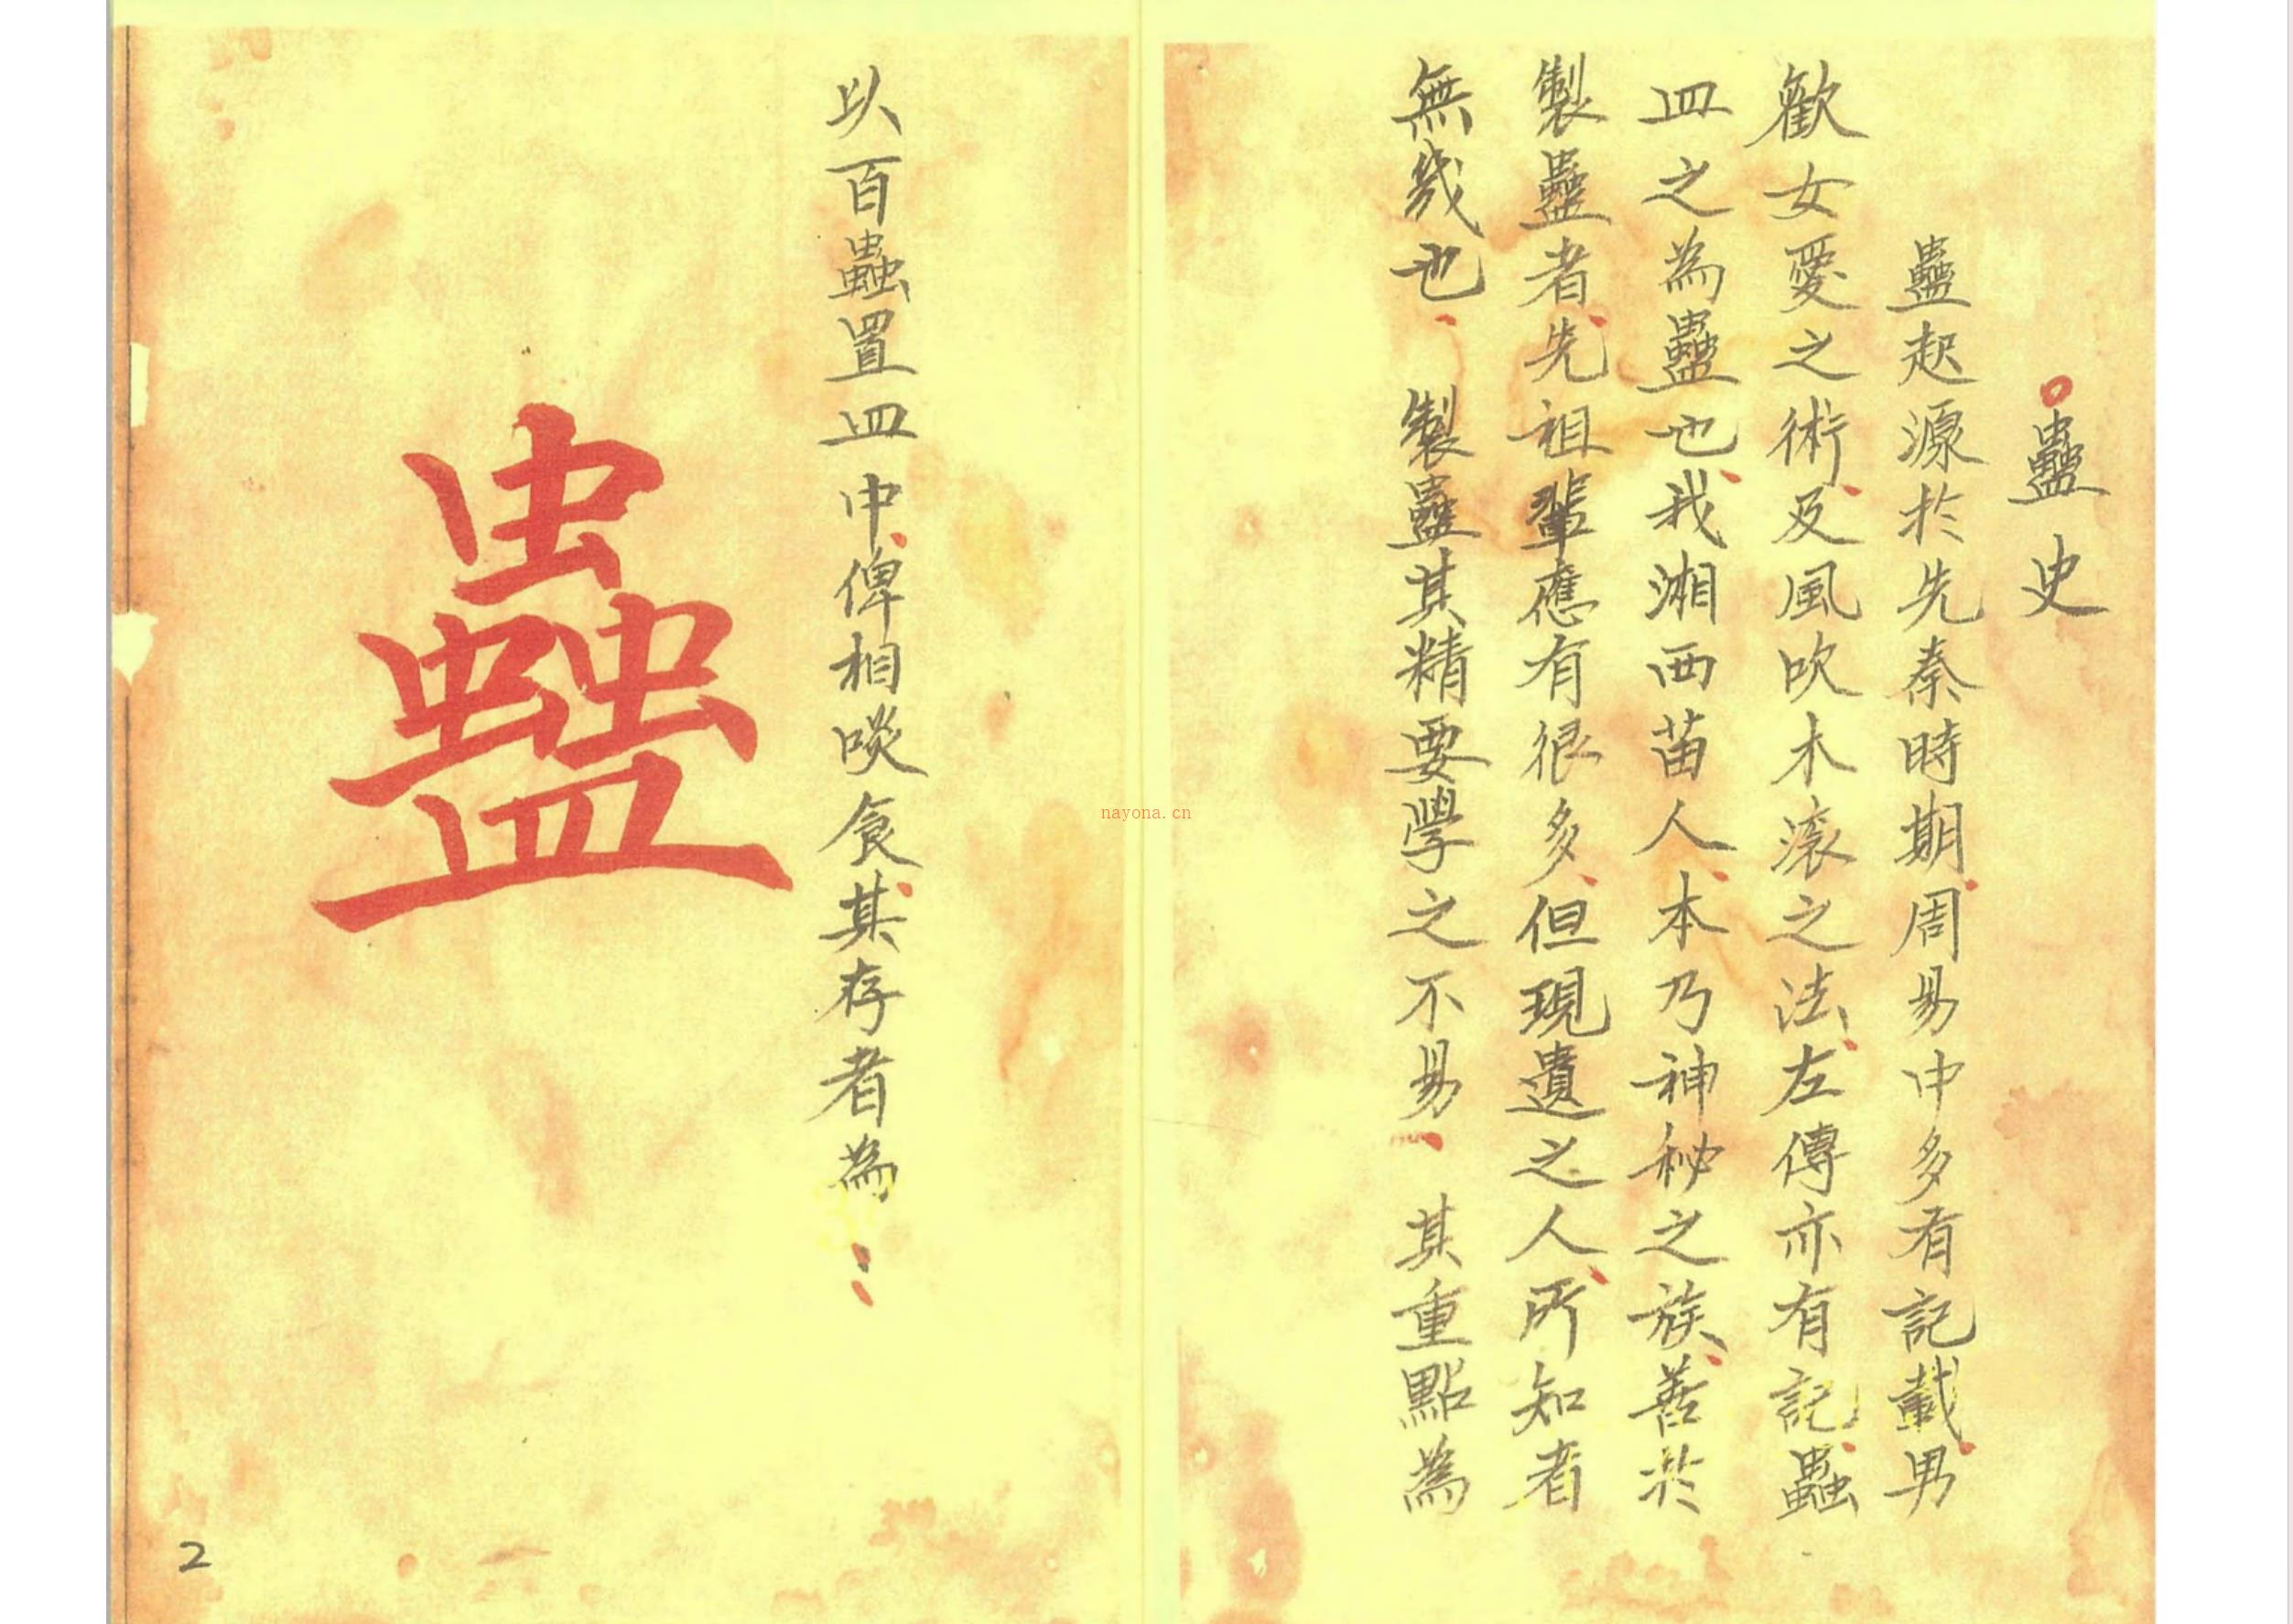 蠱史
蠱起源於先秦時期周易中多有記載男
歡女愛之術及風吹木滚之法左傳亦有記蟲
皿之為蠱也我湘西苗人本乃神秘之族善於
製蠱者先祖輩應有很多但現遺之人所知者
無幾也 製蠱其精要學之不易 其重點為
以百蟲置皿中俾相啖食其存者為：
蠱
2
nayona.cn